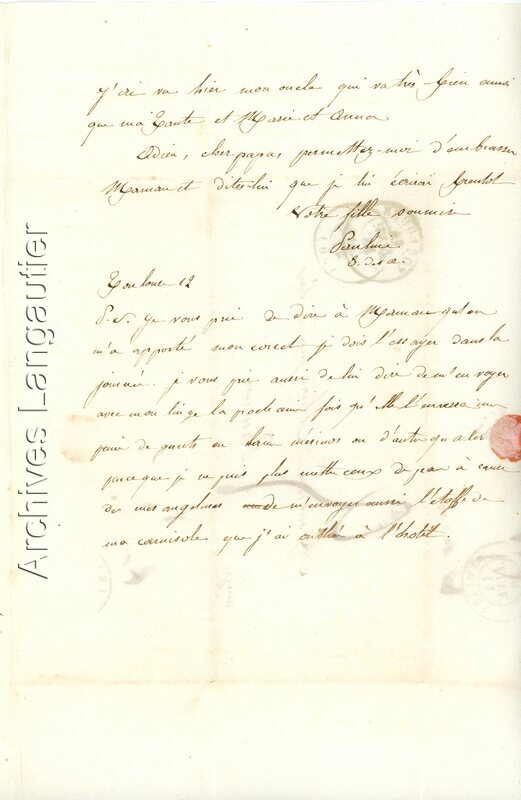 J'ai vu hier mon oncle qui va très-bien ainsi
que ma tante et Marie et Anna
Adieu, cher papa, permettez-moi d'embrasser
Maman et dites-lui que je lui écrirai bientot
Votre fille soumise
Pauline
E. des a.
Toulouse 12
P.S. Je vous prie de dire à Maman qu'on
m'a apporté mon corset je dois l'essayer dans la
journée. je vous prie aussi de lui dire de m'envoyer
avec mon linge la prochaine fois qu'elle l'enverra une
paire de gants en laine mérinos ou d'autre
parceque je ne puis plus mettre ceux de peau à cause
des mes angelures de m'envoyer aussi l'étoffe de
ma camisole que j'ai oublié à l'hotel.
Archives Langautier